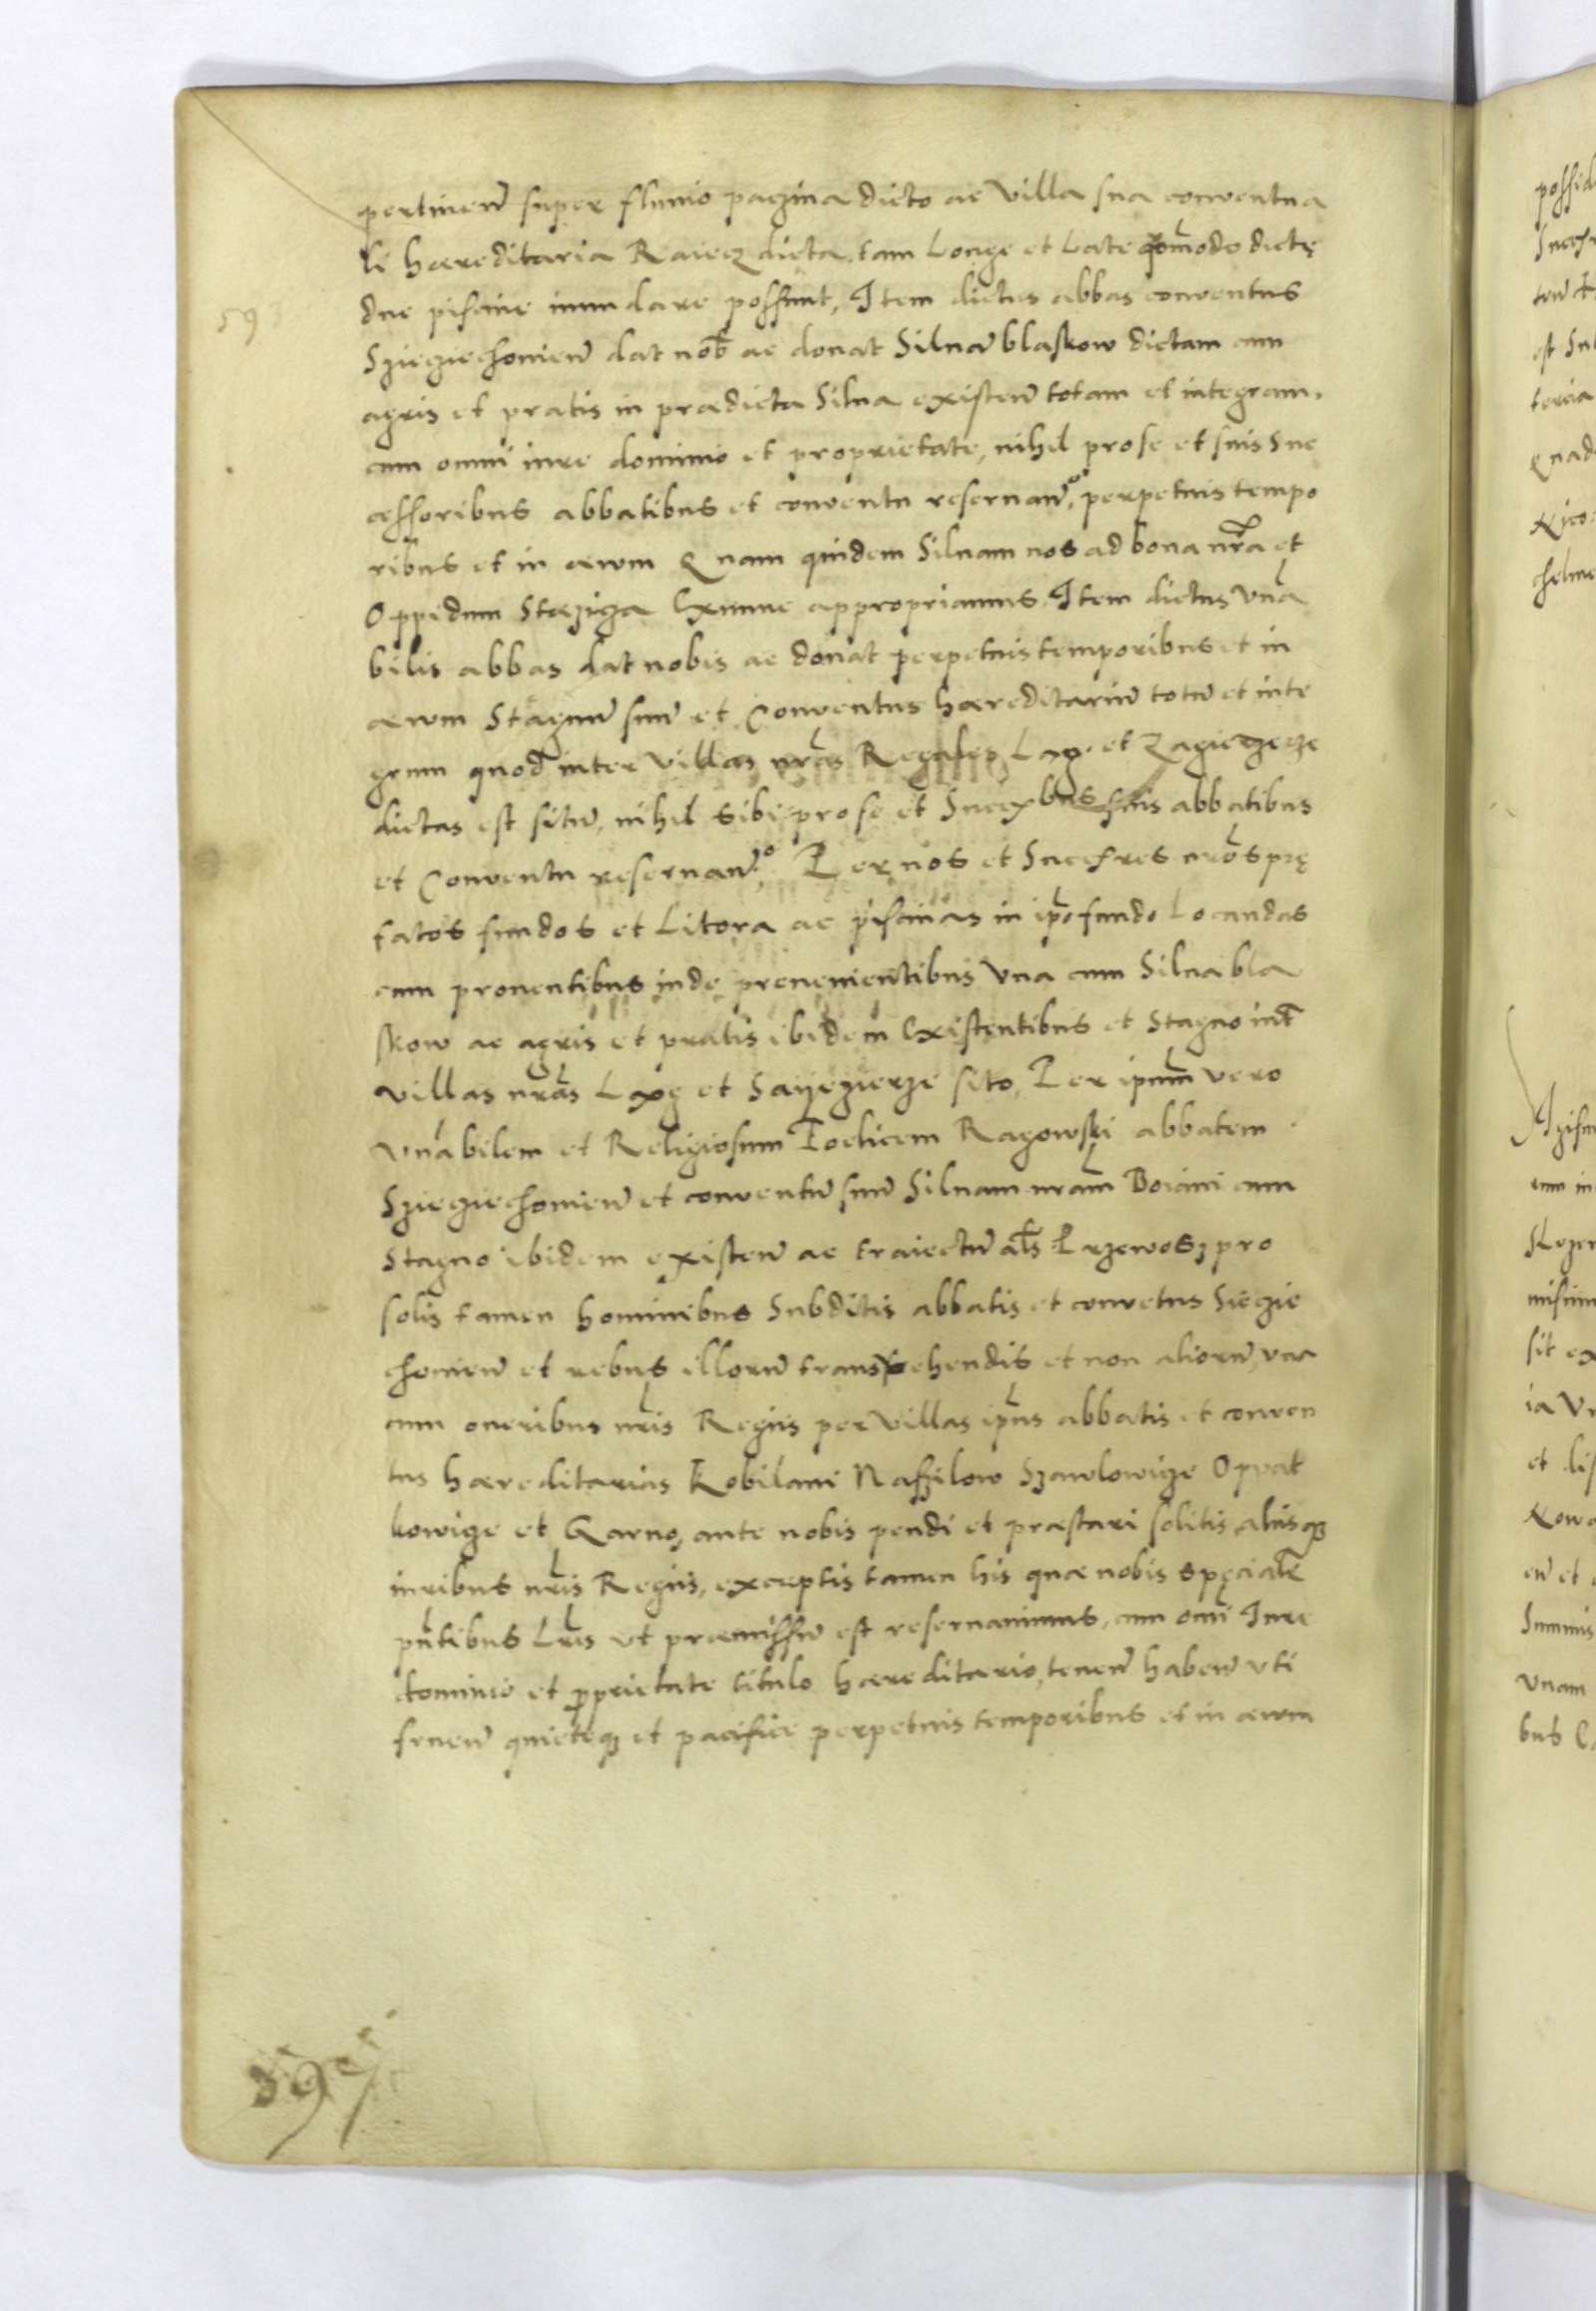 pertinen̄ super fluuio pagina dicto ac Villa sua conuentua
li hæreditaria Raiecz dicta, tam Longe et Late quom̄odo dictę
duę piscinę inundare possunt, Item dictus abbas conuentus
59
Sziecziechouien̄ dat nob̄ ac donat Siluā blaskow dictam cum
agris et pratis in prædicta Silua existen̄ totam et integram,
cum omni iure dominio et proprietate, nihil pro se et suis Suc
cessoribus abbatibus et conuentu reseruan̄o, perpetuis tempo
ribus et in æwm Quam quidem Siluam nos ad bona nr̄a et
Oppidum Stęzicza Exnunc appropriamus, Item dictus Vn̄a
bilis abbas dat nobis ac donat perpetuis temporibus et in
æwm Stagnū suū et Conuentus hæreditariū totū et inte
grum quod inter Villas nr̄as Regales Lxg. et Zagierzcze
dictas est sitū, nihil sibi pro se et Succ̄xbus suis abbatibus
et Conuentu reseruan̄o, Per nos et Succ̄ssres nr̄os prę
fatos fundos et Litora ac piscinas in ip̄o fundo Locandas
cum prouentibus inde preuenientibus Vna cum Silua bla
skow ac agris et pratis ibidem Existentibus et Stagno int̄
villas nr̄as Lxg et Sayezierze sito, Per ipsum̄ vero
Vn̄abilem et Religiosum Foelicem Ragowski abbatem
Sziecziechouien̄ et conuentū suū Siluam nram̄ Boiani cum
Stagno ibidem existen̄ ac traiectū al̄s Przewosz pro
solis tamen hominibus Subditis abbatis et conuetus Siezie
chouien̄ et rebus illorū transvehendis et non aliorū, vna
cum oneribus nr̄is Regiis per Villas ipsius abbatis et conuen
tus hæreditarias Kobilani Nassilow Szawlowicze Opat
kowicze et Garno, ante nobis pendi et præstari solitis aliisqȝ
iuribus nr̄is Regiis, exceptis tamen his quæ nobis specialr̄
pn̄tibus Lr̄is vt præmissū est reseruauimus, cum om̄i Iure
dominio et proprietate titulo hæreditario, tenen̄ haben̄ vti
fruen̄ quieteqȝ et pacifice perpetuis temporibus et in æwm